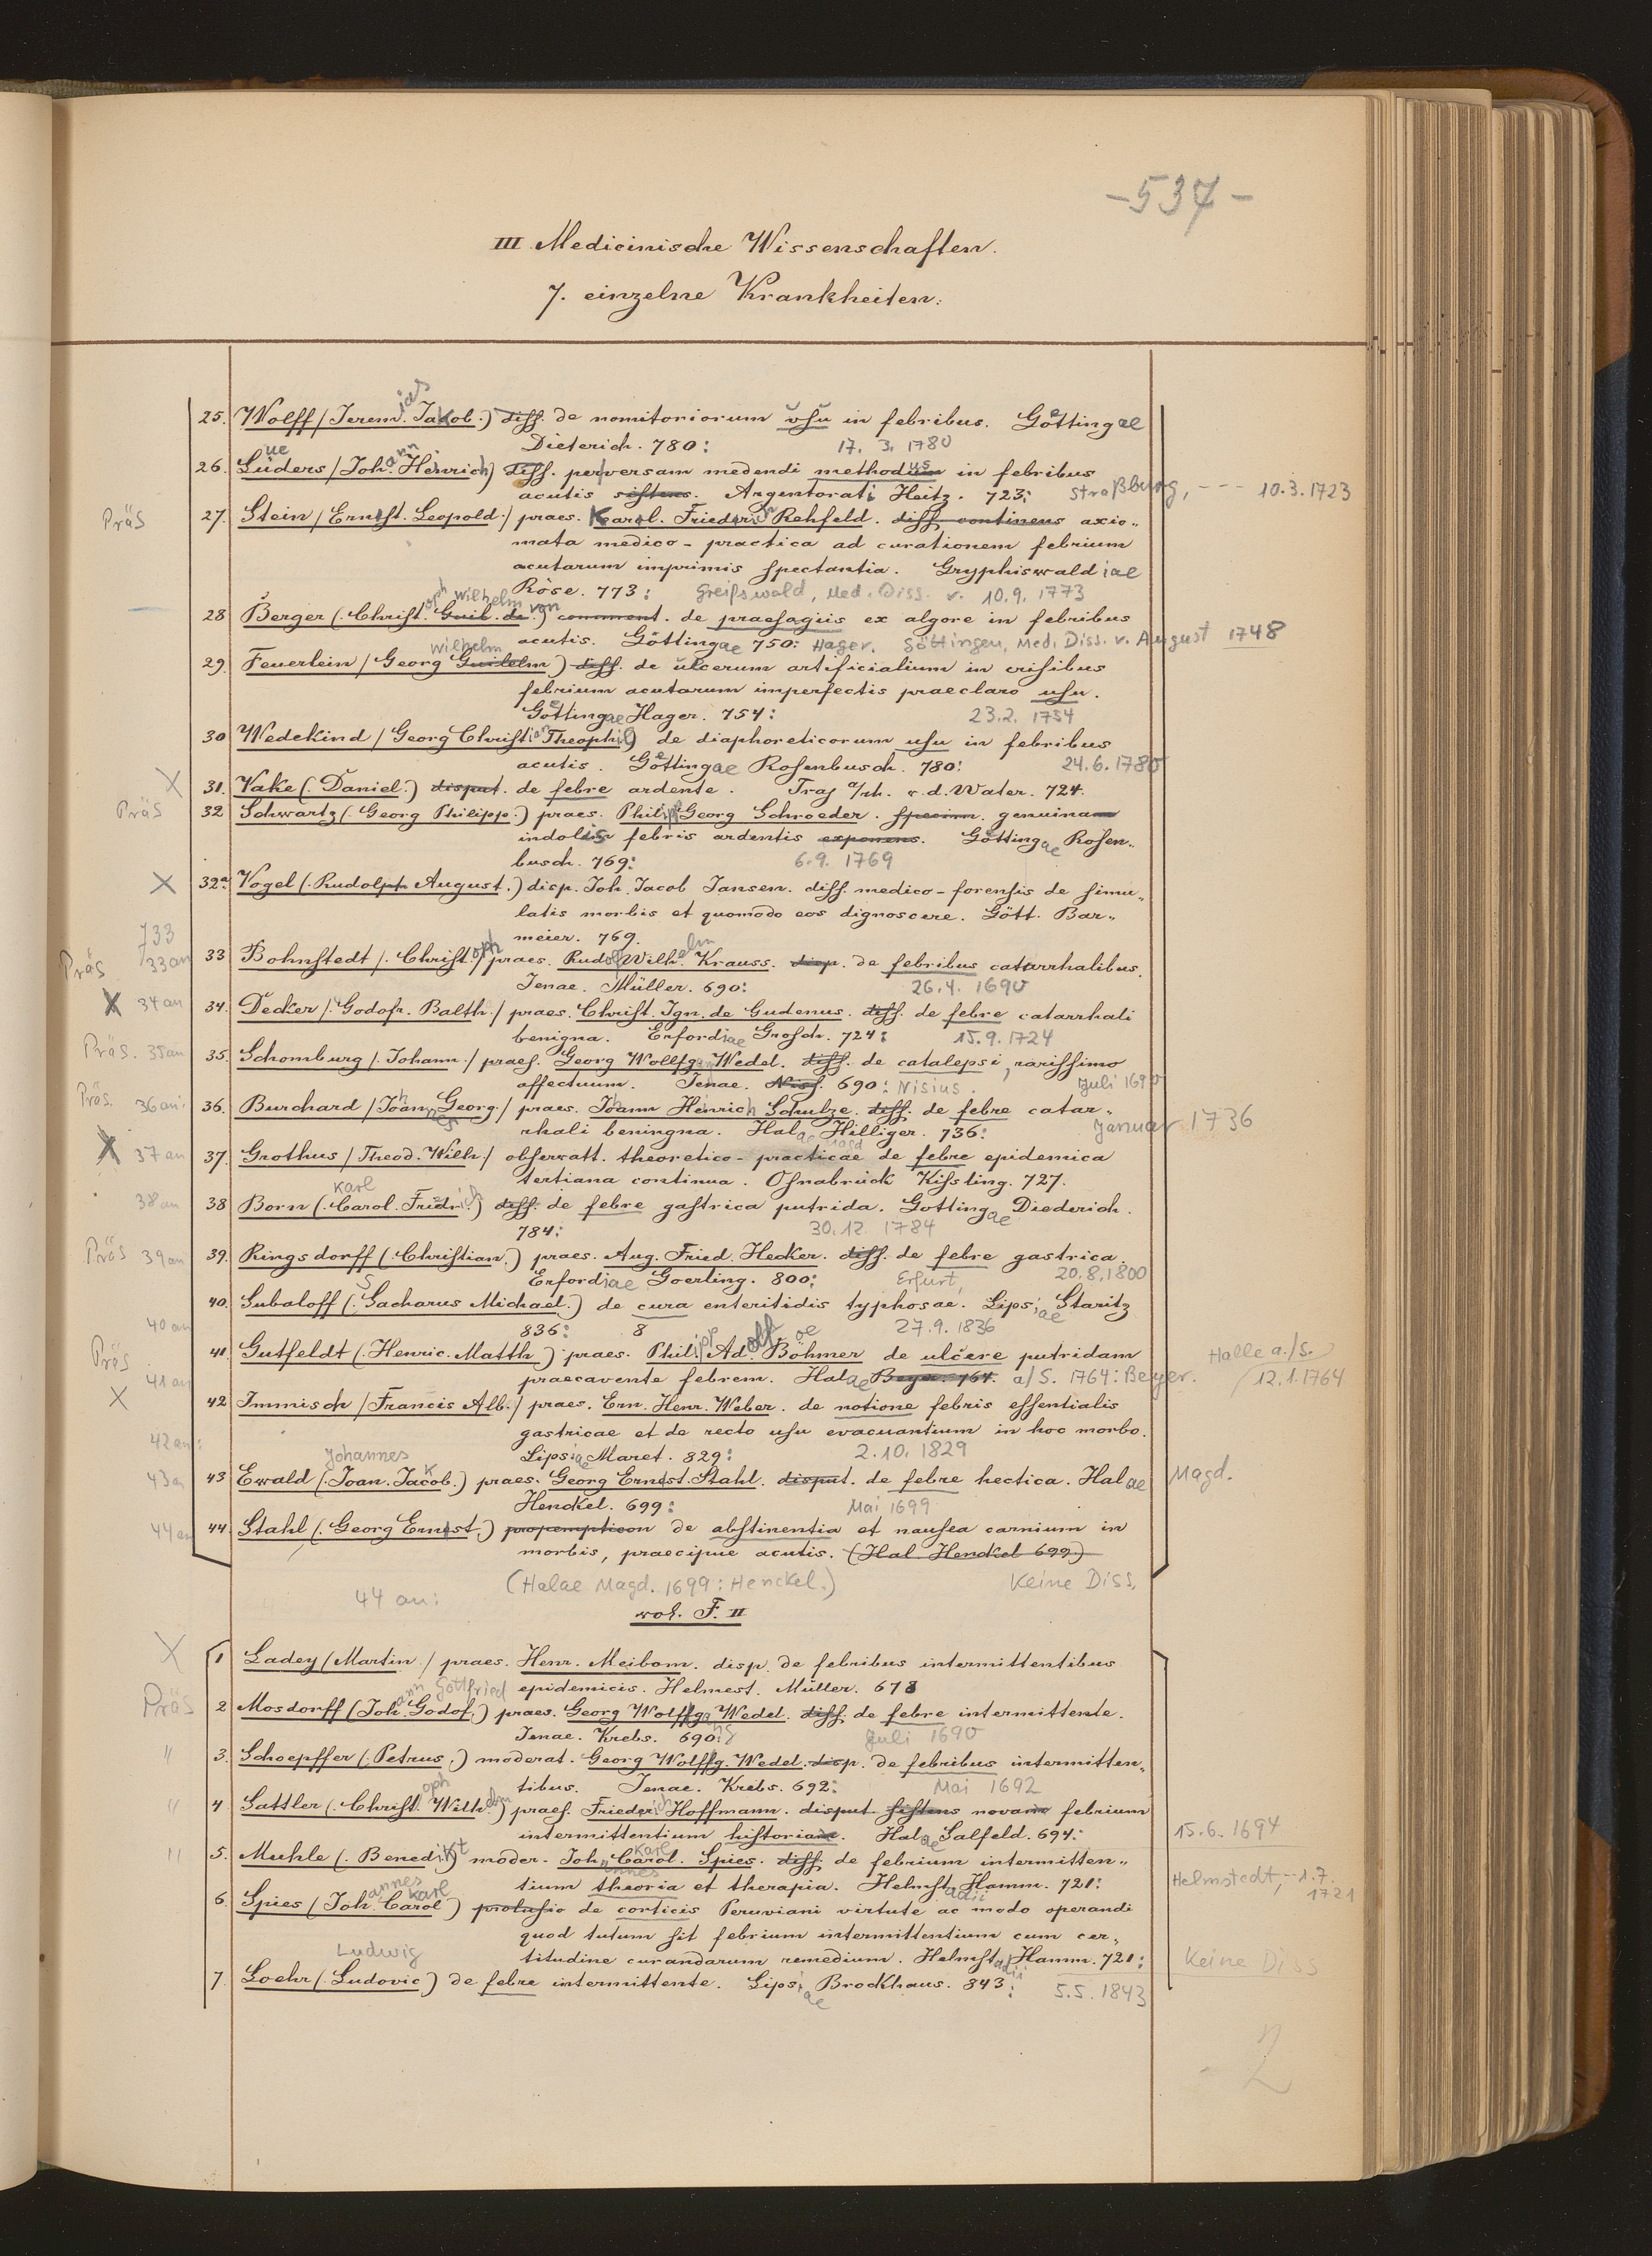 -537-
III Medicinische Wissenschaften.
7. einzelne Krankheiten.
25. Wolff (Jerem.ias Jakob.) diss. de nomitoriorum usu in febribus. Goettingae
Dieterich. 780: 17. 3. 1780
26. Lueders (Johann Heinrich) diss. perversam medendi methodus in febribus
acutis sistens. Argentorati Heitz. 723: Straßburg, --- 10.3.1723
Präs 27. Stein (Ernst. Leopold.) praes. Karl. Friedrich Rehfeld. diss. continens axio-
mata medico-practica ad curationem febrium
acutarum imprimis spectantia. Gryphiswaldiae
Röse. 773: Greifswald, Med. Diss. v. 10.9.1773
28 Berger (Christoph Wilhelm Guil. de von) comment. de praesagiis ex algore in febribus
acutis. Göttingae 750: Hager. Göttingen, Med. Diss. v. August 1748
29. Feuerlein (Georg Guilelm Wilhelm) diss. de ulcerum artificialium in crisibus
febrium acutarum imperfectis praeclaro usu.
Goettingae Hager. 754: 23.2. 1754
30 Wedekind (Georg Christian Theophil) de diaphoreticorum usu in febribus
acutis. Goettingae Rosenbusch. 780: 24.6.1780
X 31. Vake (Daniel.) disput. de febre ardente. Traj a/rh. v.d. Water. 724.
Präs 32 Schwartz (Georg Philipp.) praes. Philipp Georg Schroeder. specimm. genuinam
indolis febris ardentis exponens. Göttingae Rosen-
busch. 769: 6.9. 1769
X 32a Vogel (Rudolph August.) disp. Joh. Jacob Jansen. diss. medico-forensis de simu-
latis morbis et quomodo eos dignoscere. Gött. Bar-
meier. 769.
733
Präs 33 an 33 Bohnstedt (Christoph) praes. Rudolf Wilhelm Krauss. disp. de febribus catarrhalibus.
Jenae. Müller. 690: 26.4. 1690
X 34 an 34. Decker (Godofr. Balth.) praes. Christ. Ign. de Gudenus. diss. de febre catarrhali
benigna. Erfordiae Grosch. 724: 15.9.1724
Präs. 35 an 35. Schomburg (Johann.) praes. Georg Wolffgang Wedel. diss. de catalepsi, rarissimo
affectuum. Jenae. Nis. 690: Nisius. Juli 1690
Präs. 36 an: 36. Burchard (Johannes Georg.) praes. Johann Henrich Schulze. diss. de febre catar-
rhali beningna. Halae Magd Hilliger. 736: Januar 1736
X 37 an 37. Grothus (Theod. Wilh.) observatt. theoretico-practicae de febre epidemica
tertiana continua. Osnabrück Kissling. 727.
38 an 38 Born (Carol. Karl Friedrich) diss. de febre gastrica putrida. Gottingae Diederich.
784: 30.12. 1784
Präs 39 an 39. Ringsdorff (Christian.) praes. Aug. Fried. Hecker. diss. de febre gastrica.
Erfordiae Goerling. 800: Erfurt, 20.8.1800
40 an 40. Subaloff (Sacharus Michael.) de cura enteritidis typhosae. Lipsiae Staritz
836: 8 27.9. 1836
Präs 41 an 41. Gutfeldt (Henric. Matth.) praes. Philipp Adolf. Böhmer de ulcere putridam
praecavente febrem. Halae Beyer. 764. a/S. 1764: Beyer. Halle a./S. 12.1.1764
X 42 an: 42 Immisch (Francis Alb.) praes. Ern. Henr. Weber. de notione febris essentialis
gastricae et de recto usu evacuantium in hoc morbo.
Lipsiae Maret. 829: 2.10. 1829
43 an 43 Ewald (Joan. Johannes Jakob.) praes. Georg Ernst. Stahl. disput. de febre hectica. Halae Magd.
Henckel. 699: Mai 1699
44 an 44. Stahl (Georg Ernst.) propempticon de abstinentia et nausea carnium in
morbis, praecipue acutis. (Hal. Henckel 699)
44 an: (Halae Magd. 1699: Henckel.) Keine Diss.
vol. F. II
X 1 Ladey (Martin.) praes. Henr. Meibom. disp. de febribus intermittentibus
epidemicis. Helmest. Müller. 678
Präs 2 Mosdorff (Johann Gottfried Godof.) praes. Georg Wolffgang Wedel. diss. de febre intermittente.
Jenae. Krebs. 690: Juli 1690
" 3. Schoepffer (Petrus.) moderat. Georg Wolffg. Wedel. disp. de febribus intermitten-
tibus. Jenae. Krebs. 692: Mai 1692
" 4 Sattler (Christoph Wilhelm) praes. Friederich Hoffmann. disput. sistens novam febrium
intermittentium historiam. Halae Salfeld. 694: 15.6.1694
" 5. Muhle (Benedikt) moder. Johannes Carol. Karl Spies. diss. de febrium intermitten-
tium theoria et therapia. Helmstadii Hamm. 721: Helmstedt, -- 1.7. 1721
6. Spies (Johannes Carol Karl) prolusio de corticis Peruviani virtute ac modo operandi
quod tutum sit febrium intermittentium cum cer-
titudine curandarum remedium. Helmstadii Hamm. 721: Keine Diss
7. Loehr (Ludovic Ludwig) de febre intermittente. Lipsiae Brockhaus. 843: 5.5. 1843
2